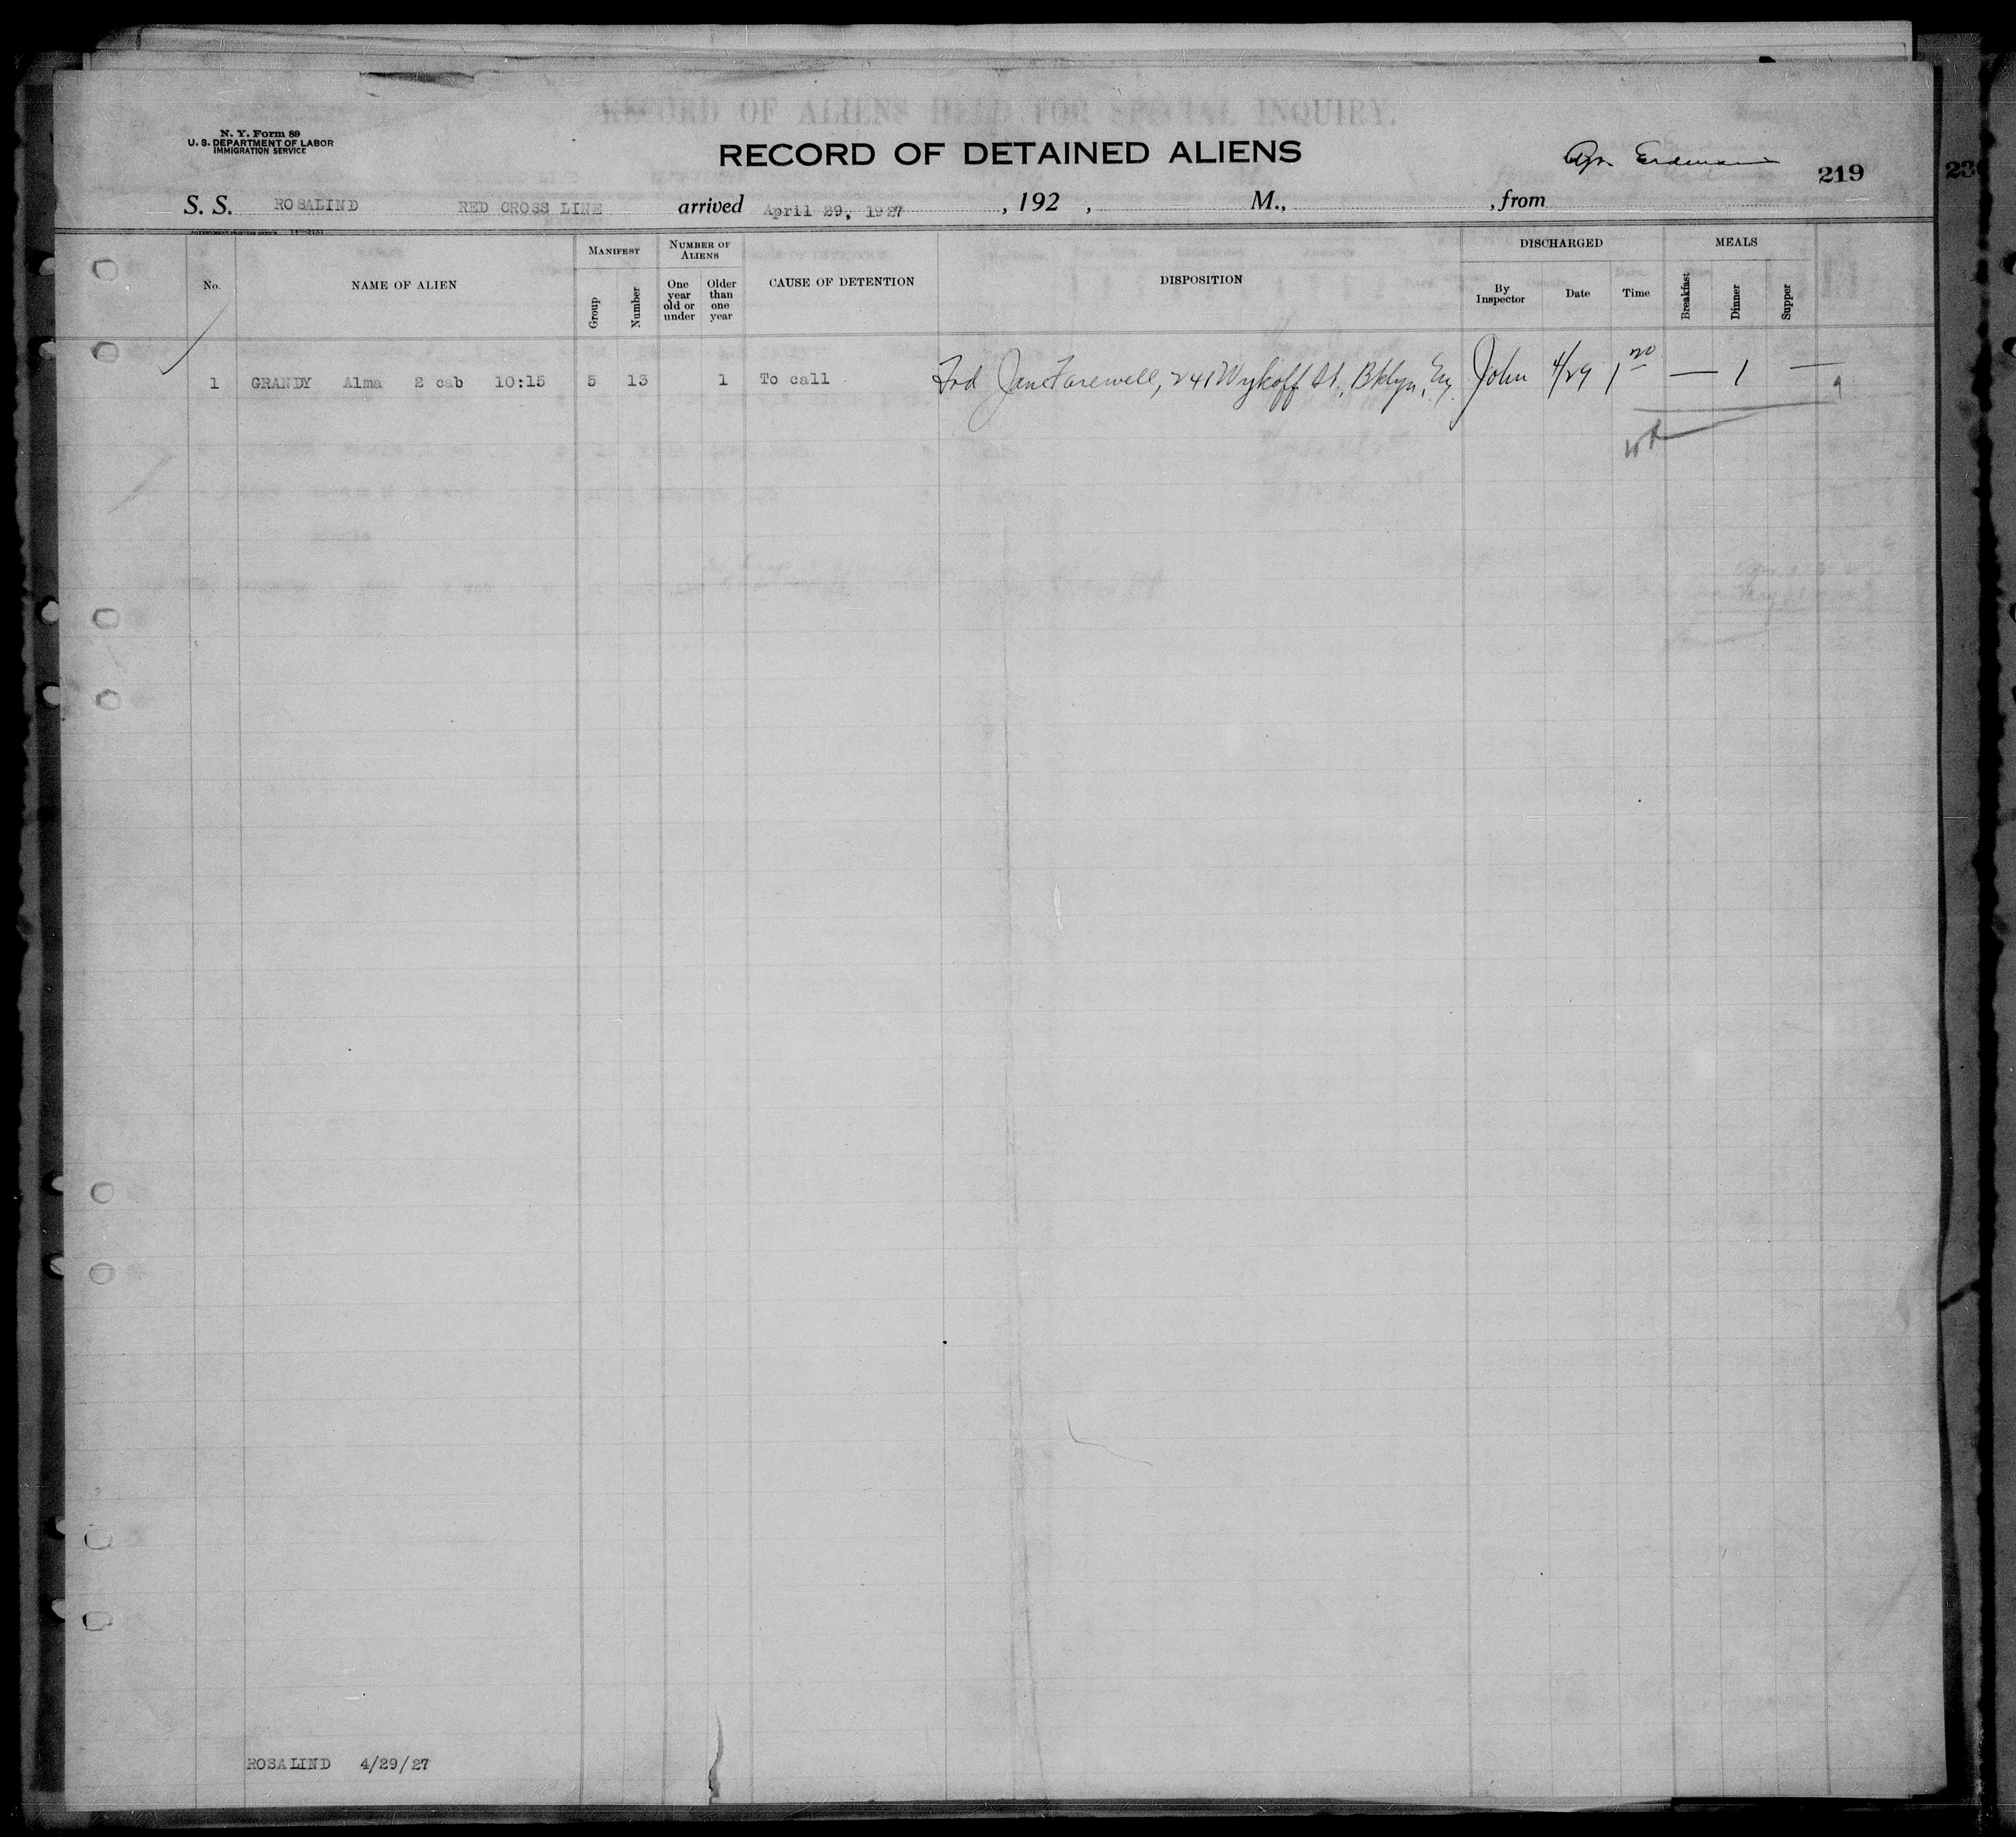 RECORD OF ALIENS HELD FOR SPECIAL INQUIRY.
N. Y. Form 89
U. S. DEPARTMENT OF LABOR
IMMIGRATION SERVICE
RECORD OF DETAINED ALIENS
Erdemann
219
S. S. ROSALIND RED CROSS LINE arrived April 29, 1927 , 192 , M., , from
No.
NAME OF ALIEN
MANIFEST
Group
Number
NUMBER OF ALIENS
One year old or under
Older than one year
CAUSE OF DETENTION
DISPOSITION
DISCHARGED
By Inspector
Date
Time
MEALS
Breakfast
Dinner
Supper
1 GRANDY Alma 2 cab 10:15 5 13 1 To call Frd Farewell, 241 Wykoff St, Bklyn, John 4/29 1 — 1 —
ROSALIND 4/29/27